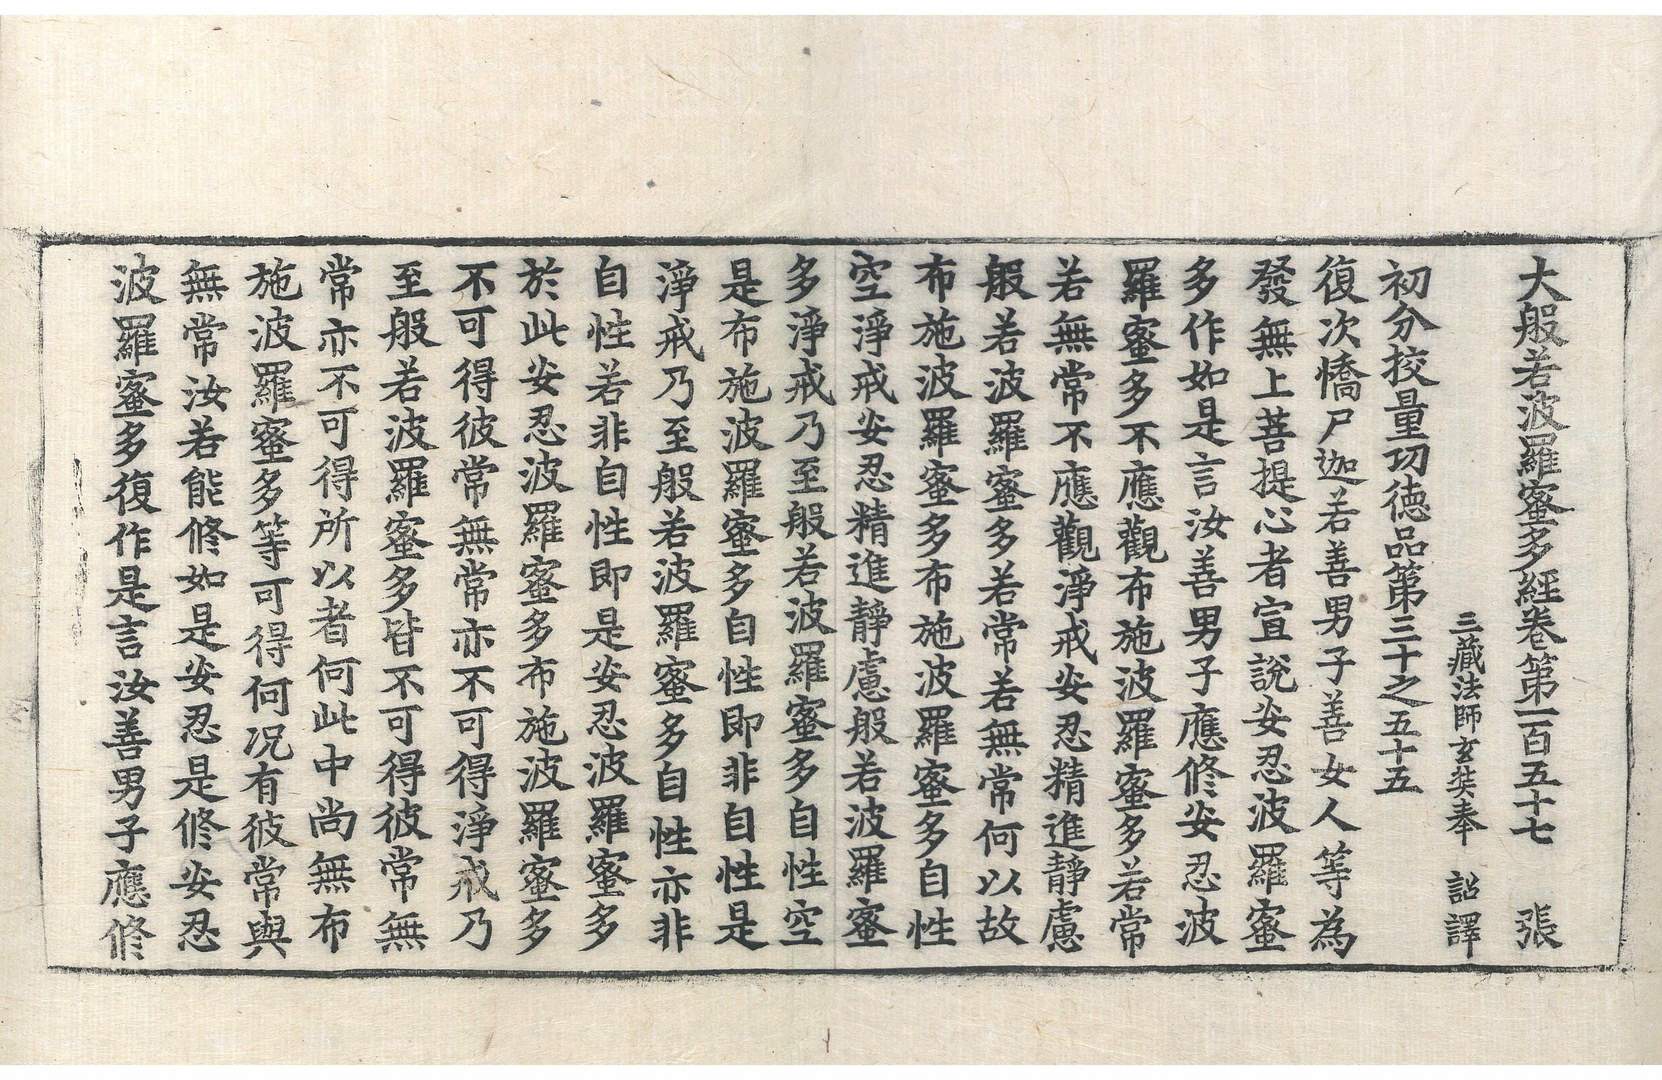 大般若波羅蜜多經卷第一百五十七 張
三藏法師玄奘奉 詔譯
初分挍量功德品第三十之五十五
復次憍尸迦若善男子善女人等為
發無上菩提心者宣說安忍波羅蜜
多作如是言汝善男子應修安忍波
羅蜜多不應觀布施波羅蜜多若常
若無常不應觀淨戒安忍精進靜慮
般若波羅蜜多若常若無常何以故
布施波羅蜜多布施波羅蜜多自性
空淨戒安忍精進靜慮般若波羅蜜
多淨戒乃至般若波羅蜜多自性空
是布施波羅蜜多自性即非自性是
淨戒乃至般若波羅蜜多自性亦非
自性若非自性即是安忍波羅蜜多
於此安忍波羅蜜多布施波羅蜜多
不可得彼常無常亦不可得淨戒乃
至般若波羅蜜多皆不可得彼常無
常亦不可得所以者何此中尚無布
施波羅蜜多等可得何況有彼常與
無常汝若能修如是安忍是修安忍
波羅蜜多復作是言汝善男子應修